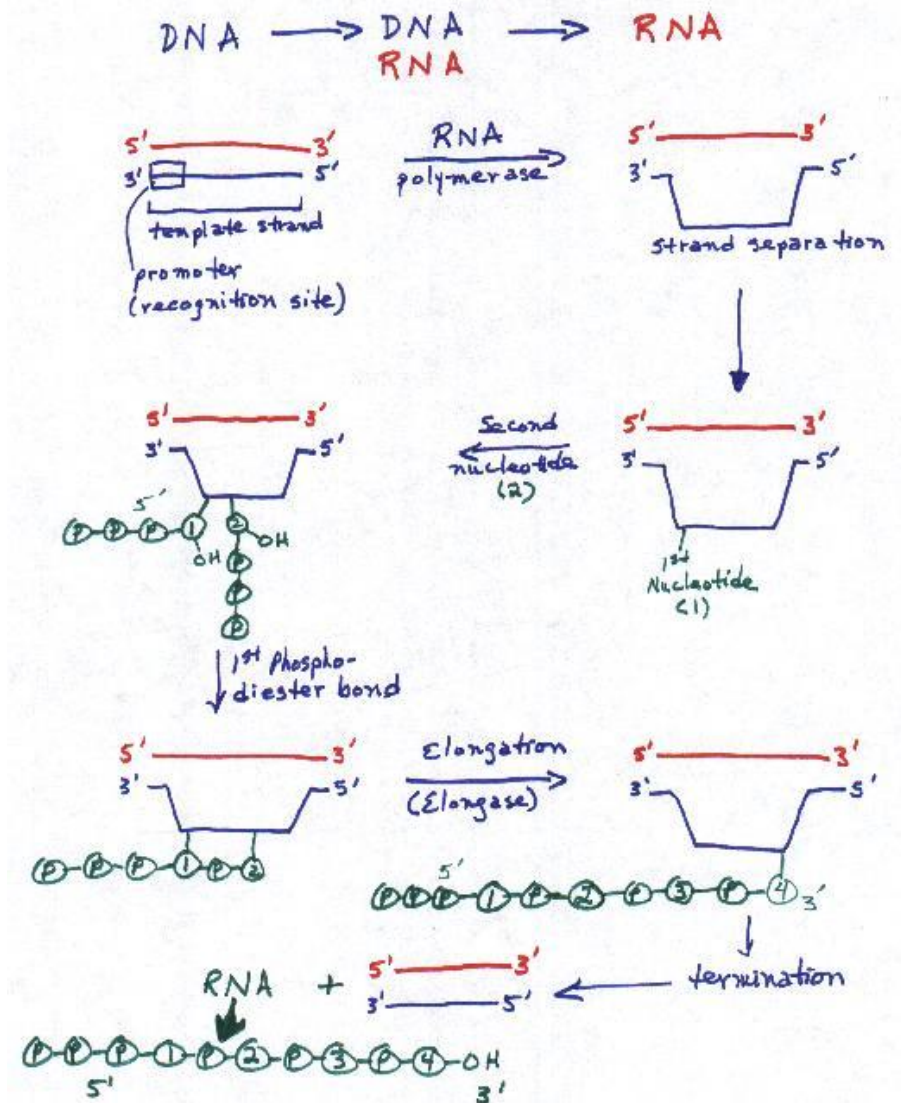 DNA → DNA → RNA
RNA
5' 3'
3' 5'
template strand
promoter
(recognition site)
RNA
polymerase
5' 3'
3' 5'
strand separation
5' 3'
3' 5'
1st
Nucleotide
(1)
Second
nucleotide
(2)
5' 3'
3' 5'
5'
P P P 1 2
OH OH
P
P
P
1st Phospho-
diester bond
5' 3'
3' 5'
P P P 1 P 2
Elongation
(Elongase)
5' 3'
3' 5'
5'
P P P 1 P 2 P 3 P 4 3'
termination
5' 3'
3' 5'
RNA +
P P P 1 P 2 P 3 P 4 OH
5' 3'